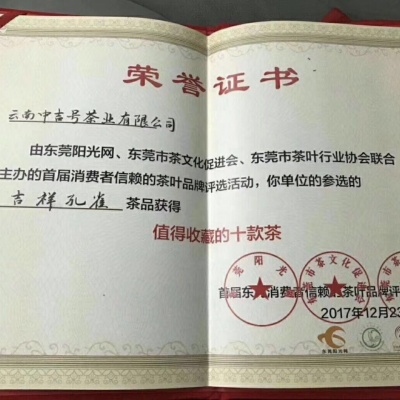 荣誉证书
云南中吉号茶业有限公司
由东莞阳光网、东莞市茶文化促进会、东莞市茶叶行业协会联合
主办的首届消费者信赖的茶叶品牌评选活动，你单位的参选的
吉祥孔雀 茶品获得
值得收藏的十款茶
莞阳光
茶文化促
首届东莞消费者信赖的茶叶品牌评
2017年12月23
东莞阳光网